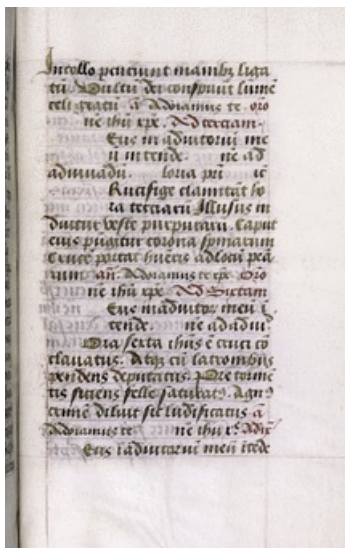 In collo percutiunt manibꝫ liga
tū Vultū dei conspuūt lumē
celi gratū ā Adoramus te. oro
ne ihū xpe. Ad terciam.
Eus in adiutoriū me
ū intende. ne ad
adiuuādū. loria pri ic
Rucifige clamitāt ho
ra terciarū Illusus in
duitur veste purpurata. Caput
eius pūgitur corona spinarum
Crucē portat hūeris ad locū pea
rum añ. Adoramus te xpe Oro
ne ihū xpe Ad Sixtam
Eus in adiutor meū ī
tende. ne ad adiu.
Ora sexta ihūs ē cruci cō
clauatus. Atqꝫ cū latronibus
pendens deputatus. Pre tormē
tis siciens felle saturat. Agnꝰ
crimē diluit sic ludificatus ā
Adoramus te ne ihū
Eus ī adiutoriū meū ītēde